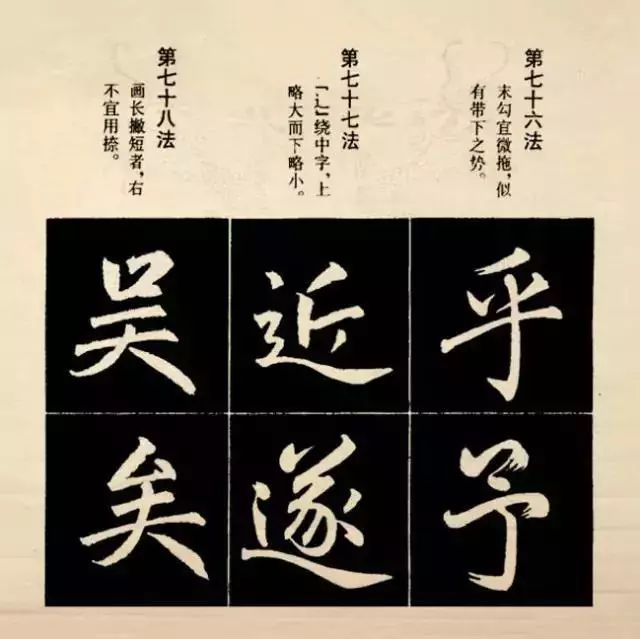 第七十六法
末勾宜微拖，似
有带下之势。
第七十七法
「辶」绕中字，上
略大而下略小。
第七十八法
画长撇短者，右
不宜用捺。
乎
予
近
遂
吴
矣